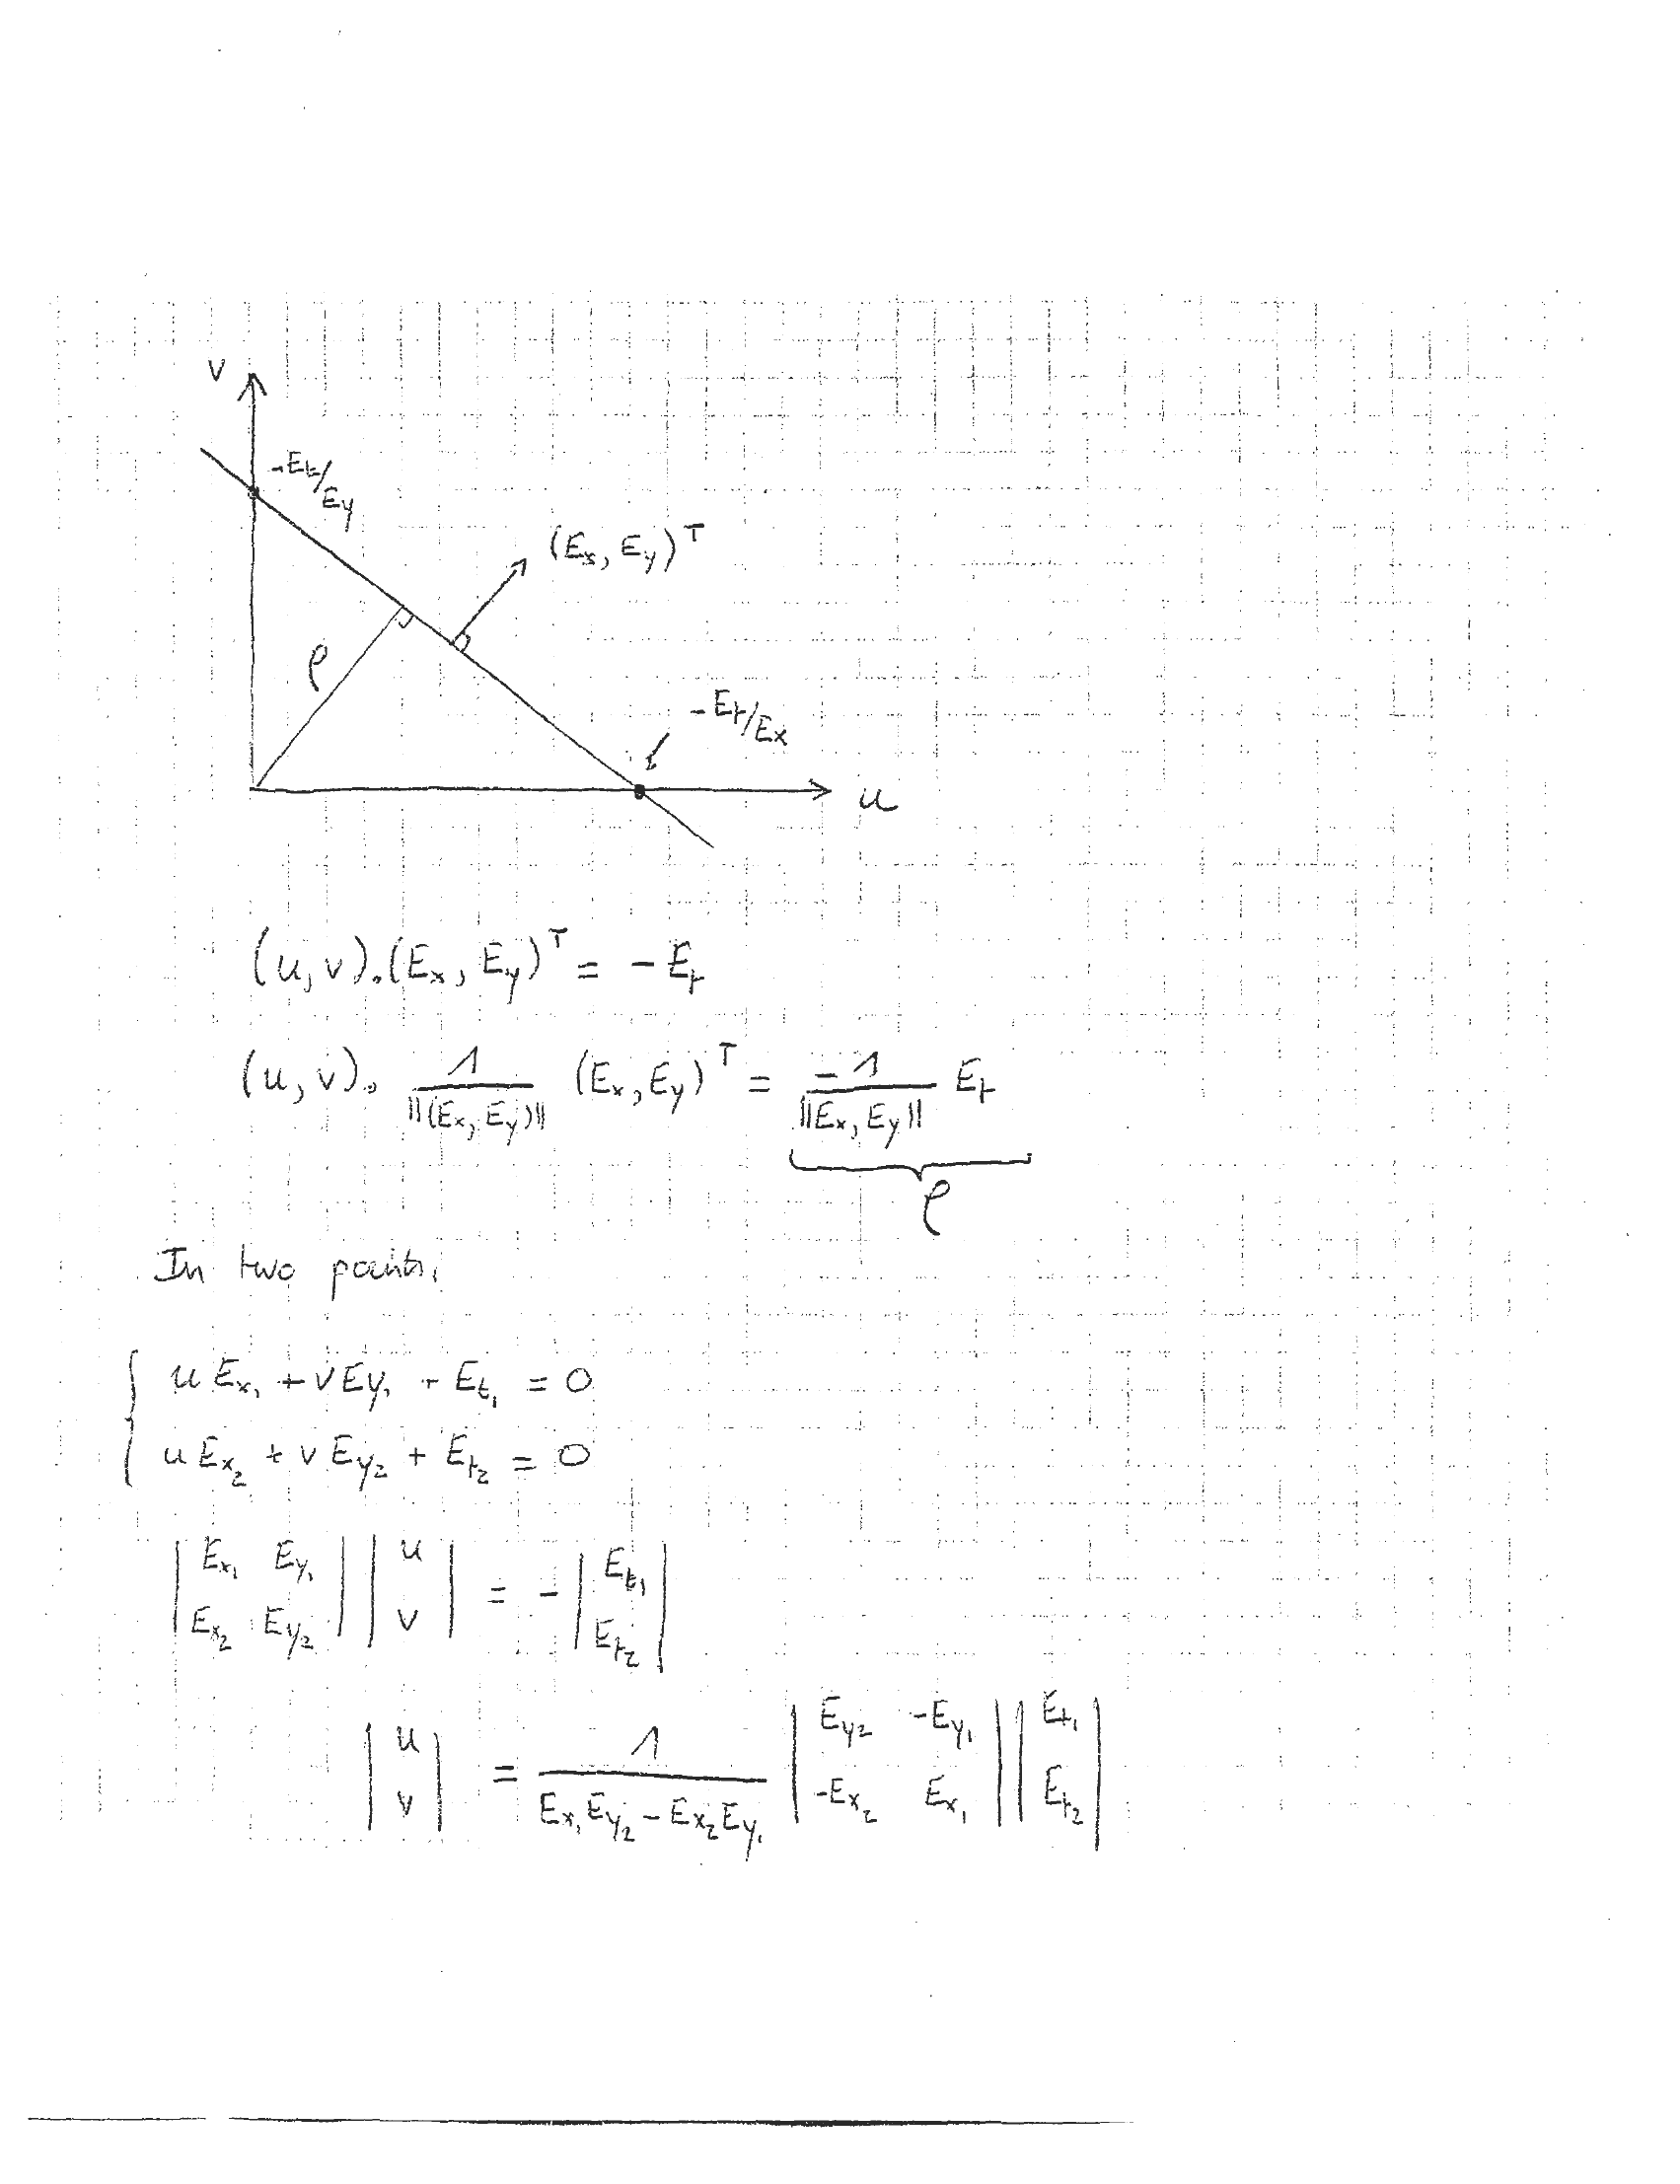 v
-Et/Ey
(Ex, Ey)ᵀ
ρ
-Et/Ex
u
(u, v).(Ex, Ey)ᵀ = - Et
(u, v). 1/||(Ex, Ey)|| (Ex, Ey)ᵀ = -1/||Ex, Ey|| Et
ρ
In two points,
u Ex₁ + v Ey₁ + Et₁ = 0
u Ex₂ + v Ey₂ + Et₂ = 0
| Ex₁ Ey₁ | | u | = - | Et₁ |
| Ex₂ Ey₂ | | v | | Et₂ |
| u | = 1 | Ey₂ -Ey₁ | | Et₁ |
| v | Ex₁Ey₂ - Ex₂Ey₁ | -Ex₂ Ex₁ | | Et₂ |